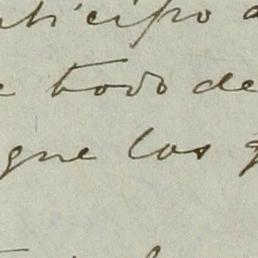 anticipo
todo de
que los